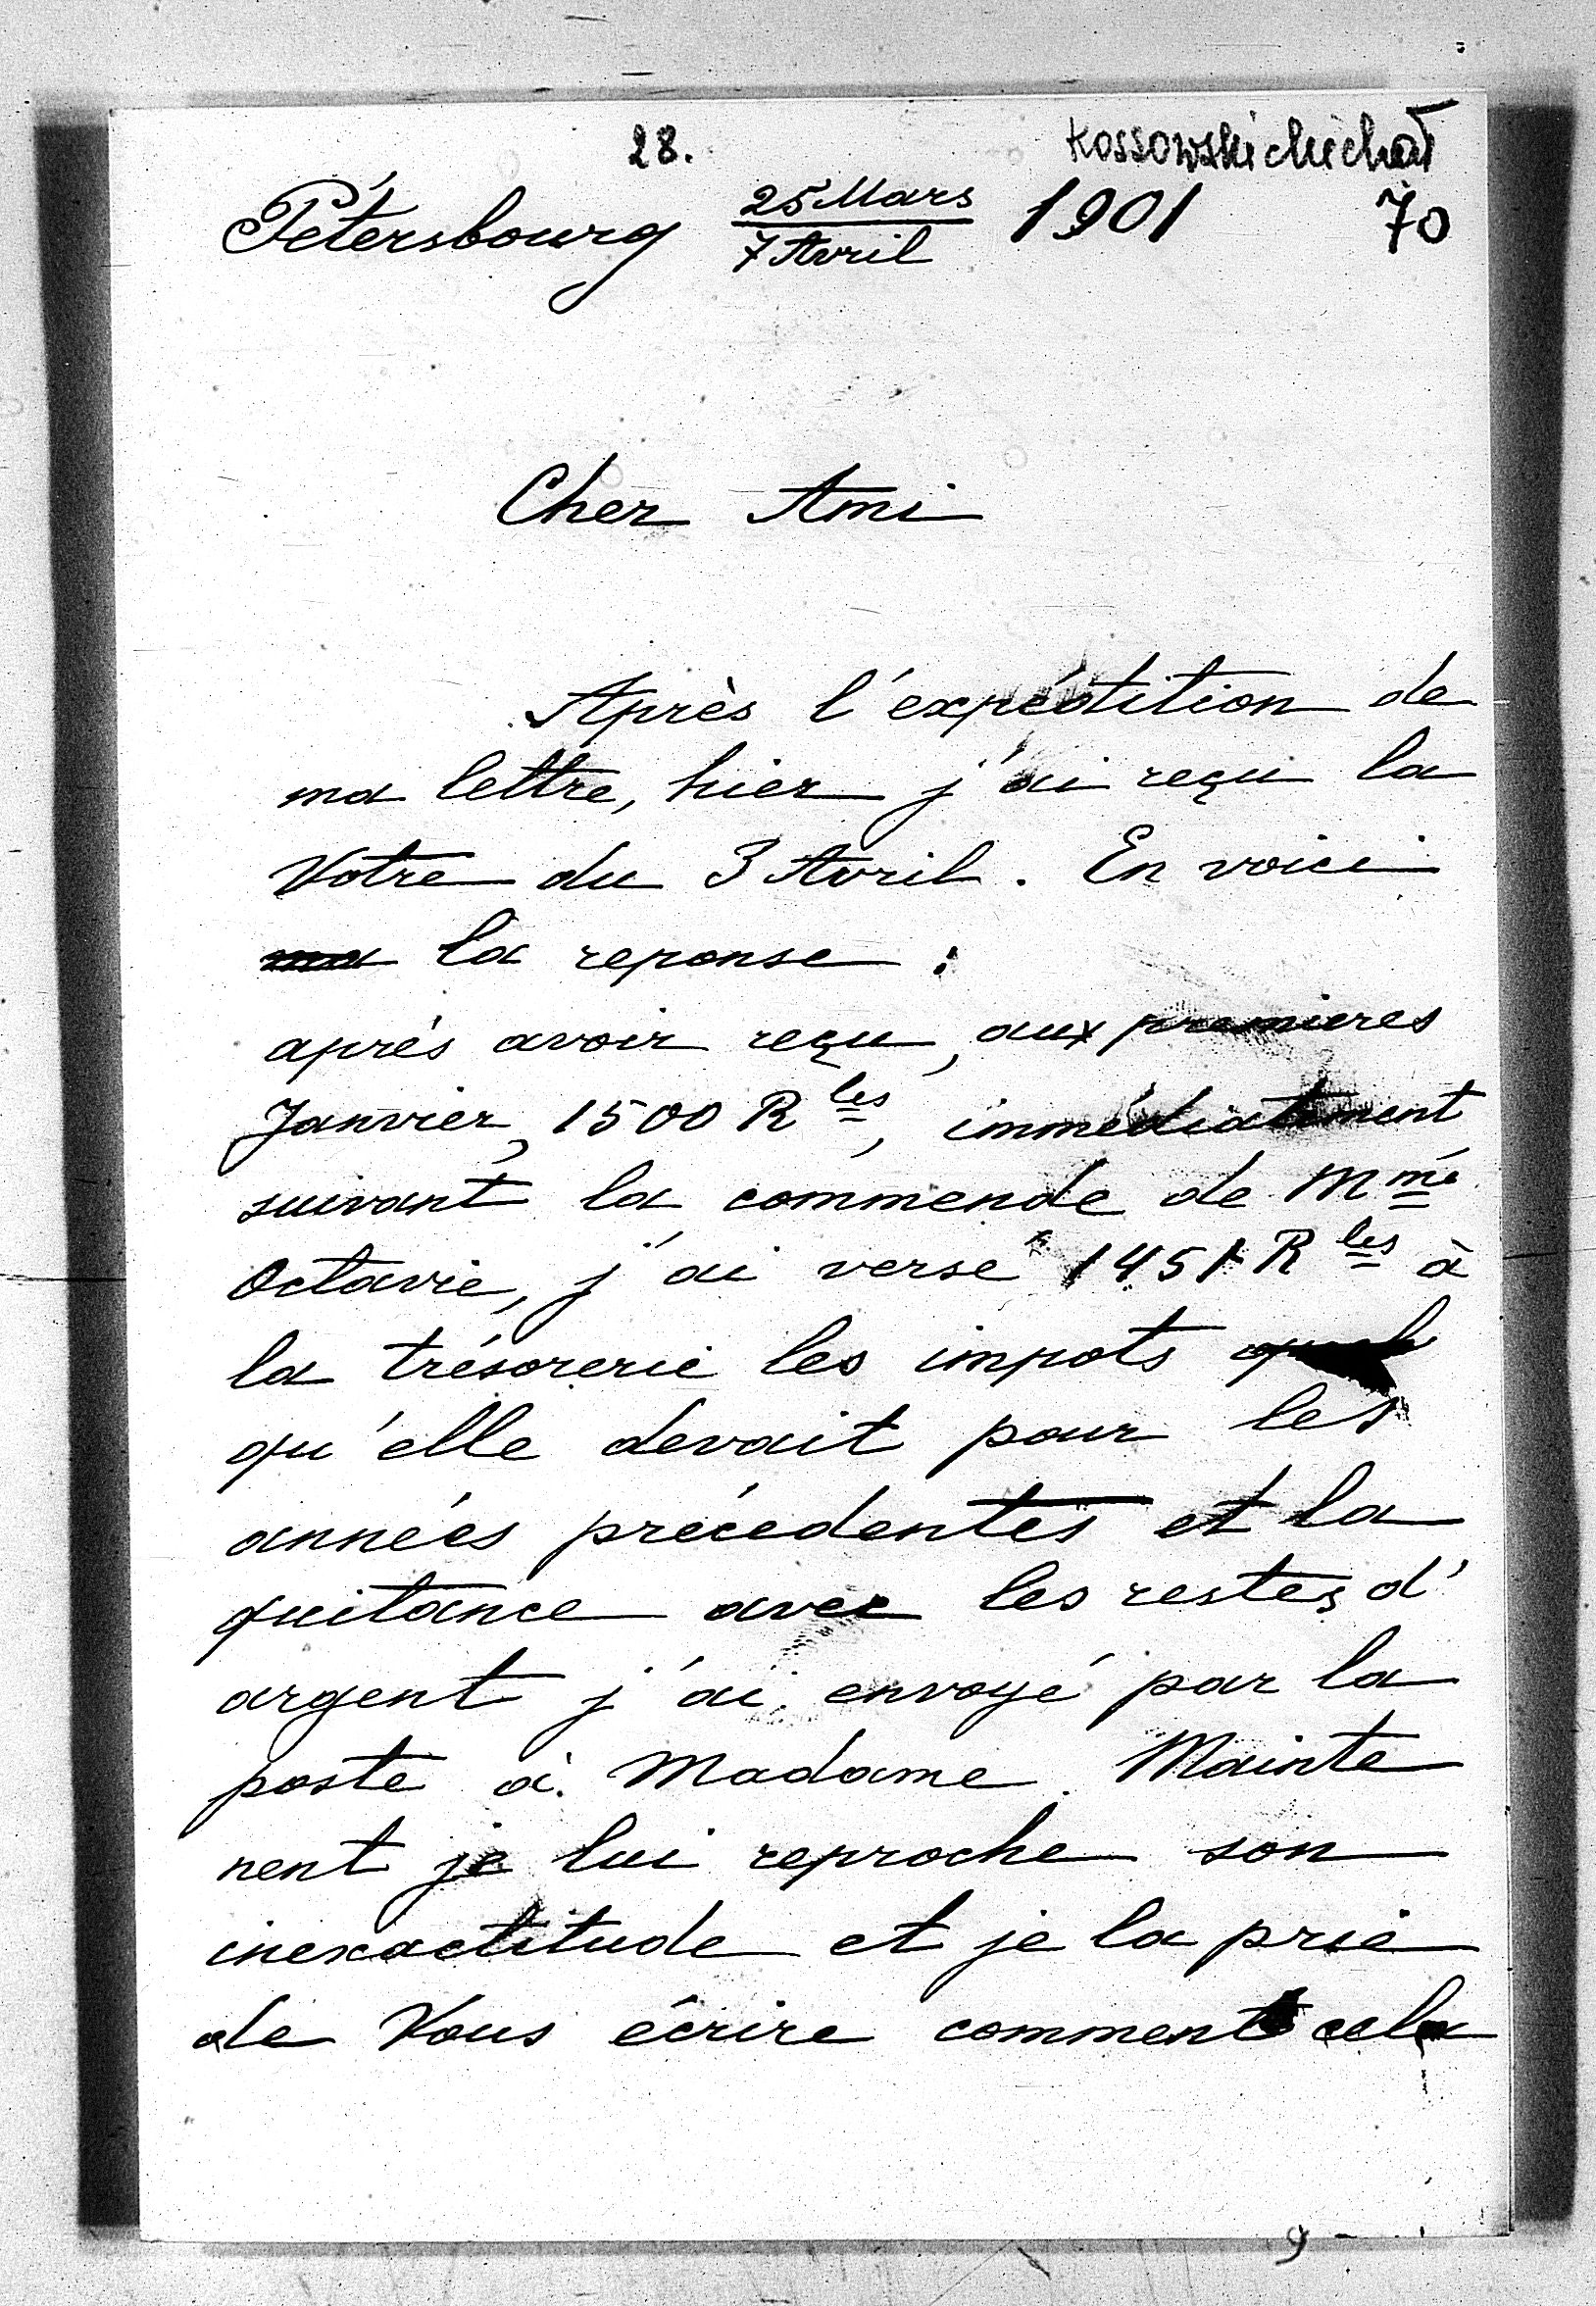 28.
Kossowski Michał
Pétersbourg 25 Mars / 7 Avril 1901
70
Cher Ami
Après l'expédition de
ma lettre, hier j'ai reçu la
Votre du 3 Avril. En voici
ma la reponse :
après avoir reçu, aux premieres
Janvier, 1500 R les, immédiatement
suivant la commende de Mme
Octavie, j'ai versé 1451 R les à
la trésorerie les impots
qu'elle devait pour les
années précedentes et la
quitance avec les restes d'
argent j'ai envoyé par la
poste à Madame. Mainte
nent je lui reproche son
inexactitude et je la prie
de Vous écrire comment cela
9